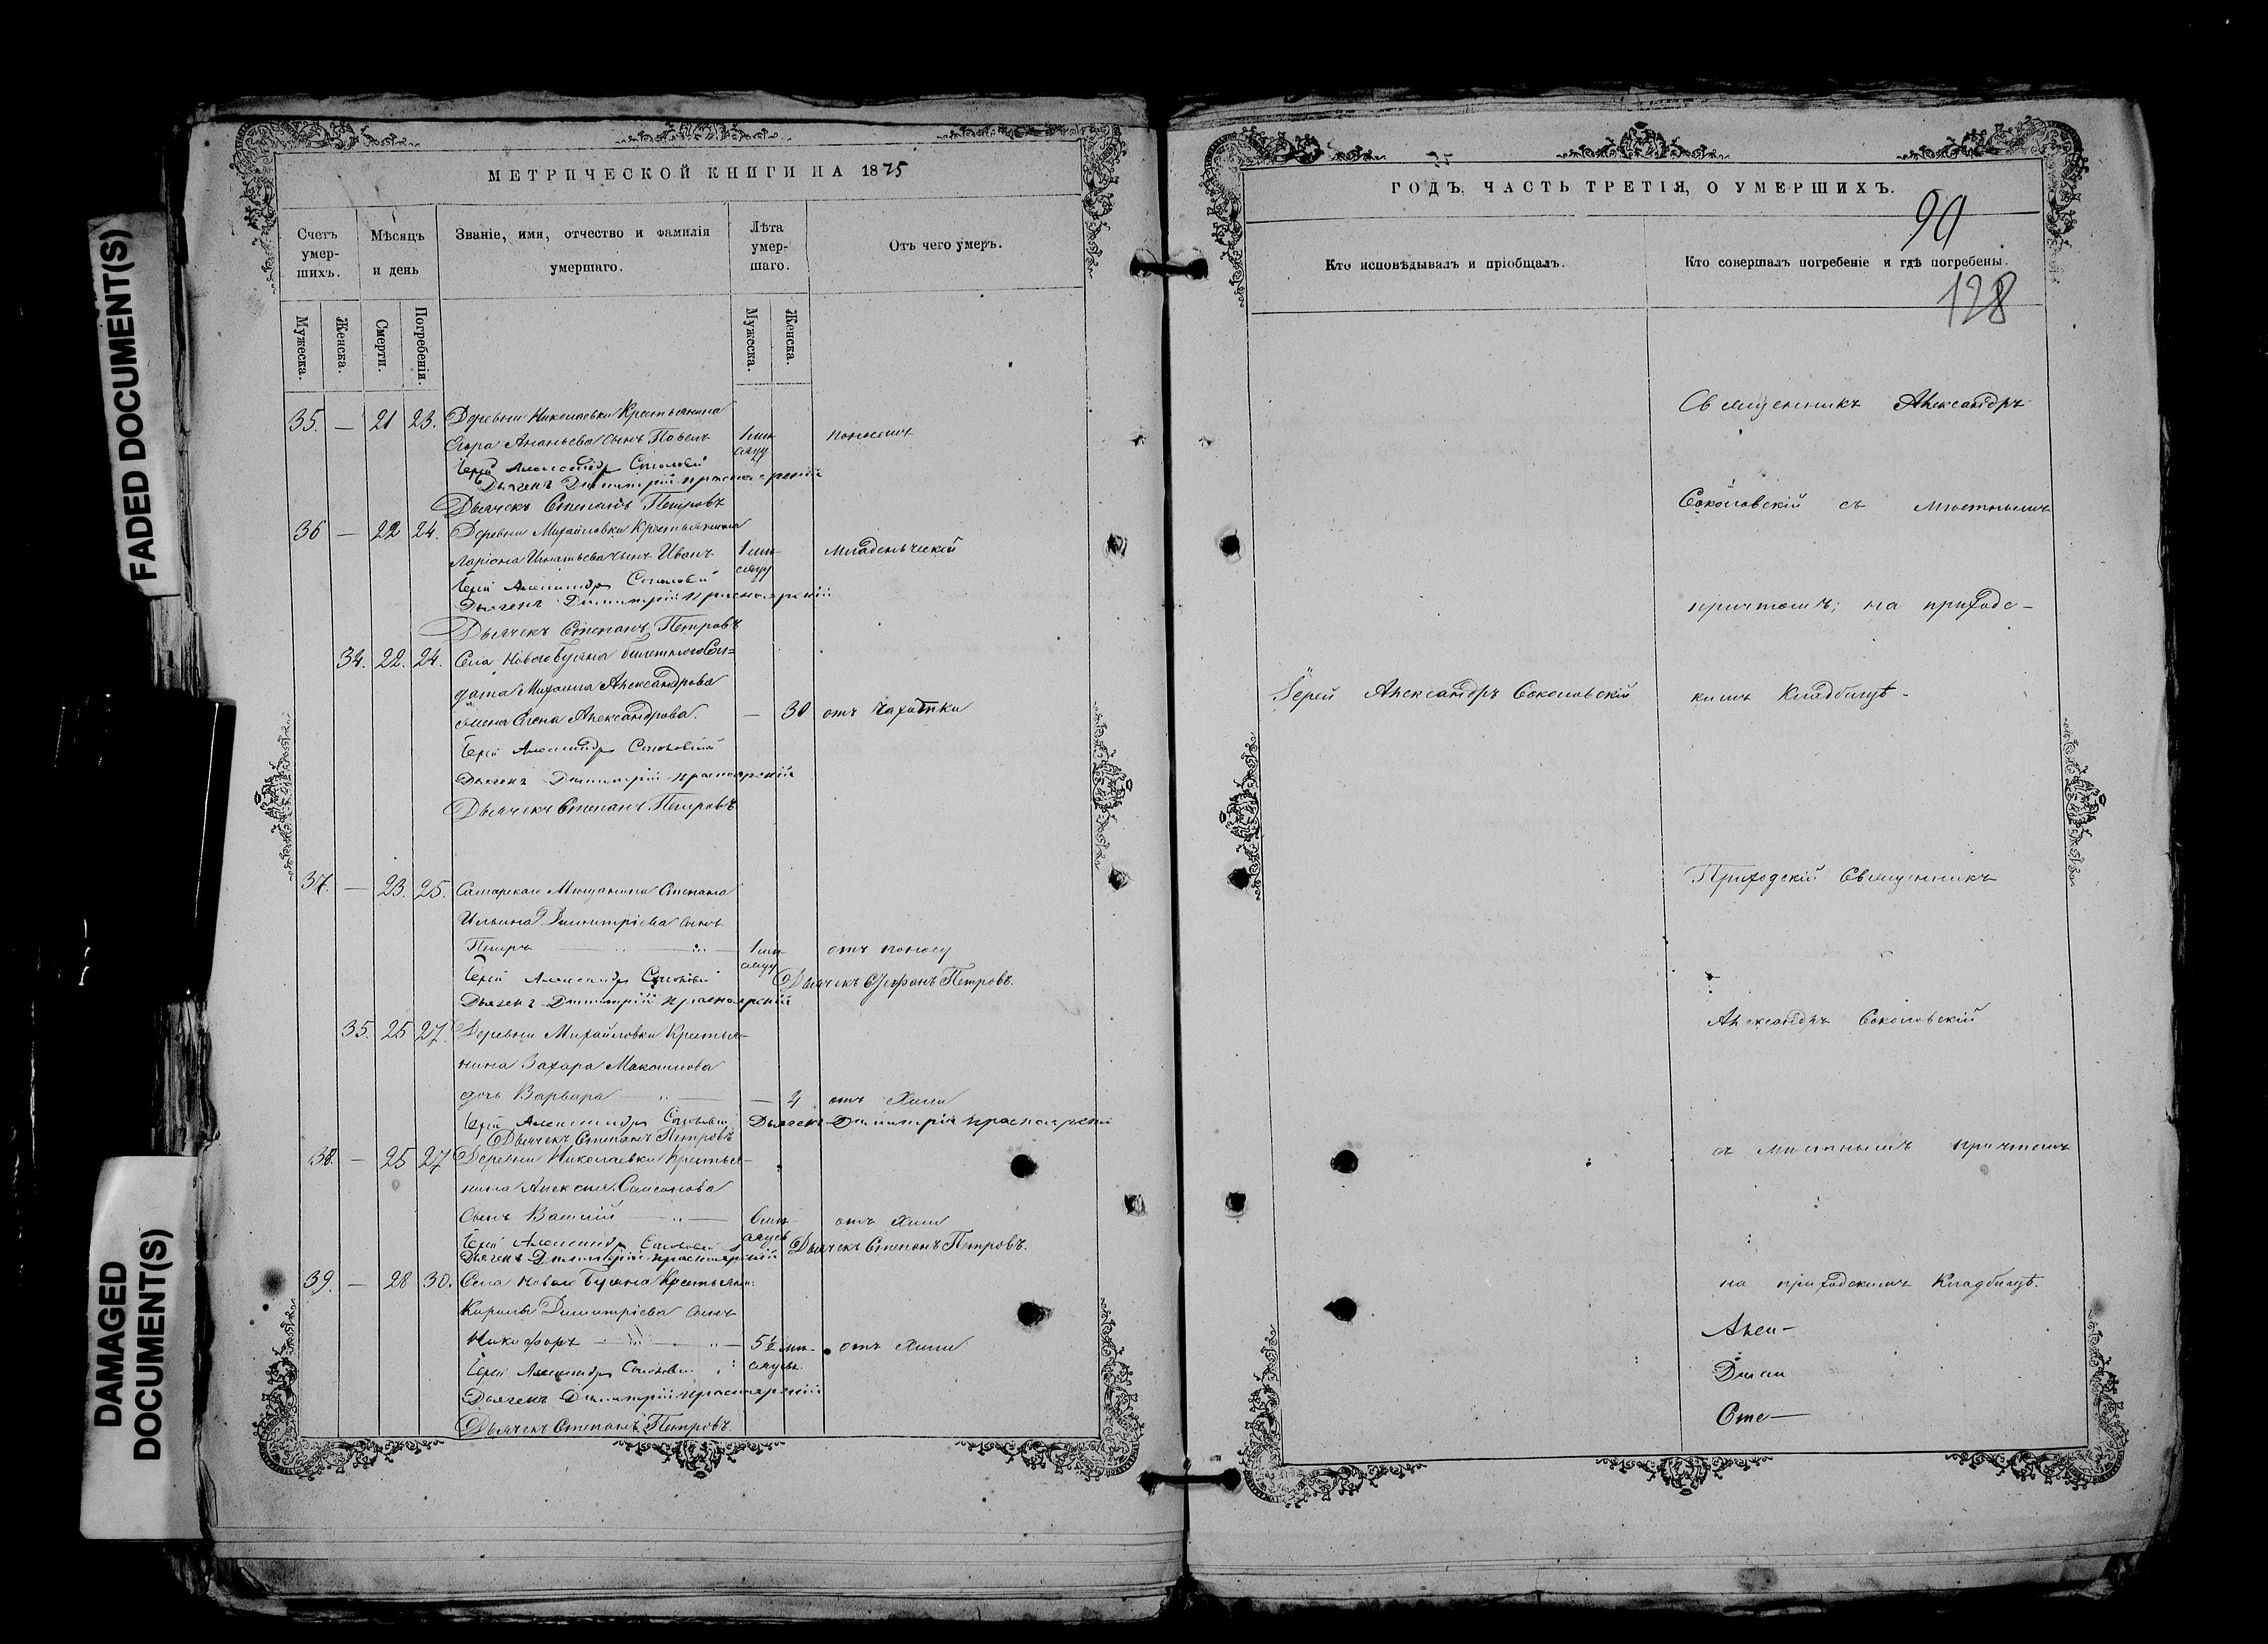 FADED DOCUMENT(S)
DAMAGED
DOCUMENT(S)
МЕТРИЧЕСКОЙ КНИГИ НА 1875
Счетъ
умер-
шихъ.
Мѣсяцъ
и день
Званіе, имя, отчество и фамилія
умершаго.
Лѣта
умер-
шаго.
Отъ чего умеръ.
Мужеска.
Женска.
Смерти.
Погребенія.
Мужеска.
Женска.
35. — 21 23. Деревни Николаевки Крестьянина
Егора Ананьева сынъ Павелъ 1 мѣ- поносомъ
сяцу
Іерей Александръ Соколовскій
Дьяконъ Димитрій Красноярскій
Дьячекъ Степанъ Петровъ
36 — 22 24. Деревни Михайловки Крестьянина
Ларіона Игнатьева сынъ Иванъ 1 мѣ- младенческой
сяцу
Іерей Александръ Соколовскій
Дьяконъ Димитрій Красноярскій
Дьячекъ Степанъ Петровъ
34. 22. 24. Села Новаго Буяна билетнаго Сол=
дата Михаила Александрова
жена Елена Александрова. — 30 отъ чахотки
Іерей Александръ Соколовскій
Дьяконъ Димитрій Красноярскій
Дьячекъ Степанъ Петровъ
37. — 23. 25. Самарскаго Мещанина Степана
Ильина Димитріева сынъ
Петръ — 1 мѣ- отъ поносу
сяцу
Іерей Александръ Соколовскій Дьячекъ Стефанъ Петровъ.
Дьяконъ Димитрій Красноярскій
35. 25 27. Деревни Михайловки Крестья-
нина Захара Максимова
дочь Варвара — — 4 отъ
Іерей Александръ Соколовскій Дьяконъ Димитрій Красноярскій
Дьячекъ Степанъ Петровъ
38. — 25 27 Деревни Николаевки Крестья-
нина Алексѣя Самсонова
Сынъ Василій — 6 мѣ- отъ
сяцевъ
Іерей Александръ Соколовскій Дьячекъ Степанъ Петровъ.
Дьяконъ Димитрій Красноярскій
39. — 28 30. Села Новаго Буяна Крестьяни:
Кирилы Димитріева сынъ
Никифоръ — 5½ мѣ- отъ
сяцевъ
Іерей Александръ Соколовскій
Дьяконъ Димитрій Красноярскій
Дьячекъ Степанъ Петровъ.
ГОДЪ, ЧАСТЬ ТРЕТІЯ, О УМЕРШИХЪ.
90
Кто исповѣдывалъ и пріобщалъ.
Кто совершалъ погребеніе и гдѣ погребены.
128
Священникъ Александръ
Соколовскій съ мѣстнымъ
причтомъ; на приходс-
Іерей Александръ Соколовскій
комъ Кладбищѣ-
Приходскій Священникъ
Александръ Соколовскій
съ мѣстнымъ причтомъ
на приходскомъ Кладбищѣ.
Алек-
Дими
Сте—